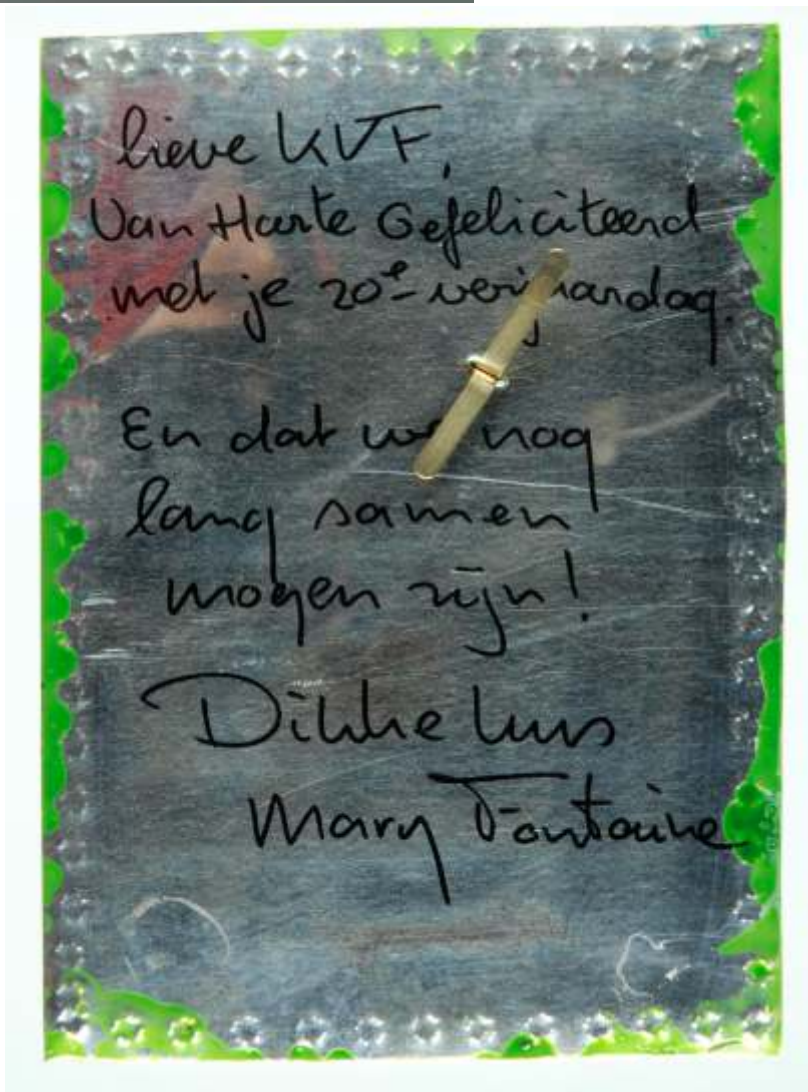 lieve KVF,
Van Harte Gefeliciteerd
met je 20e verjaardag.
En dat we nog
lang samen
mogen zijn!
Dikke kus
Mary Fontaine